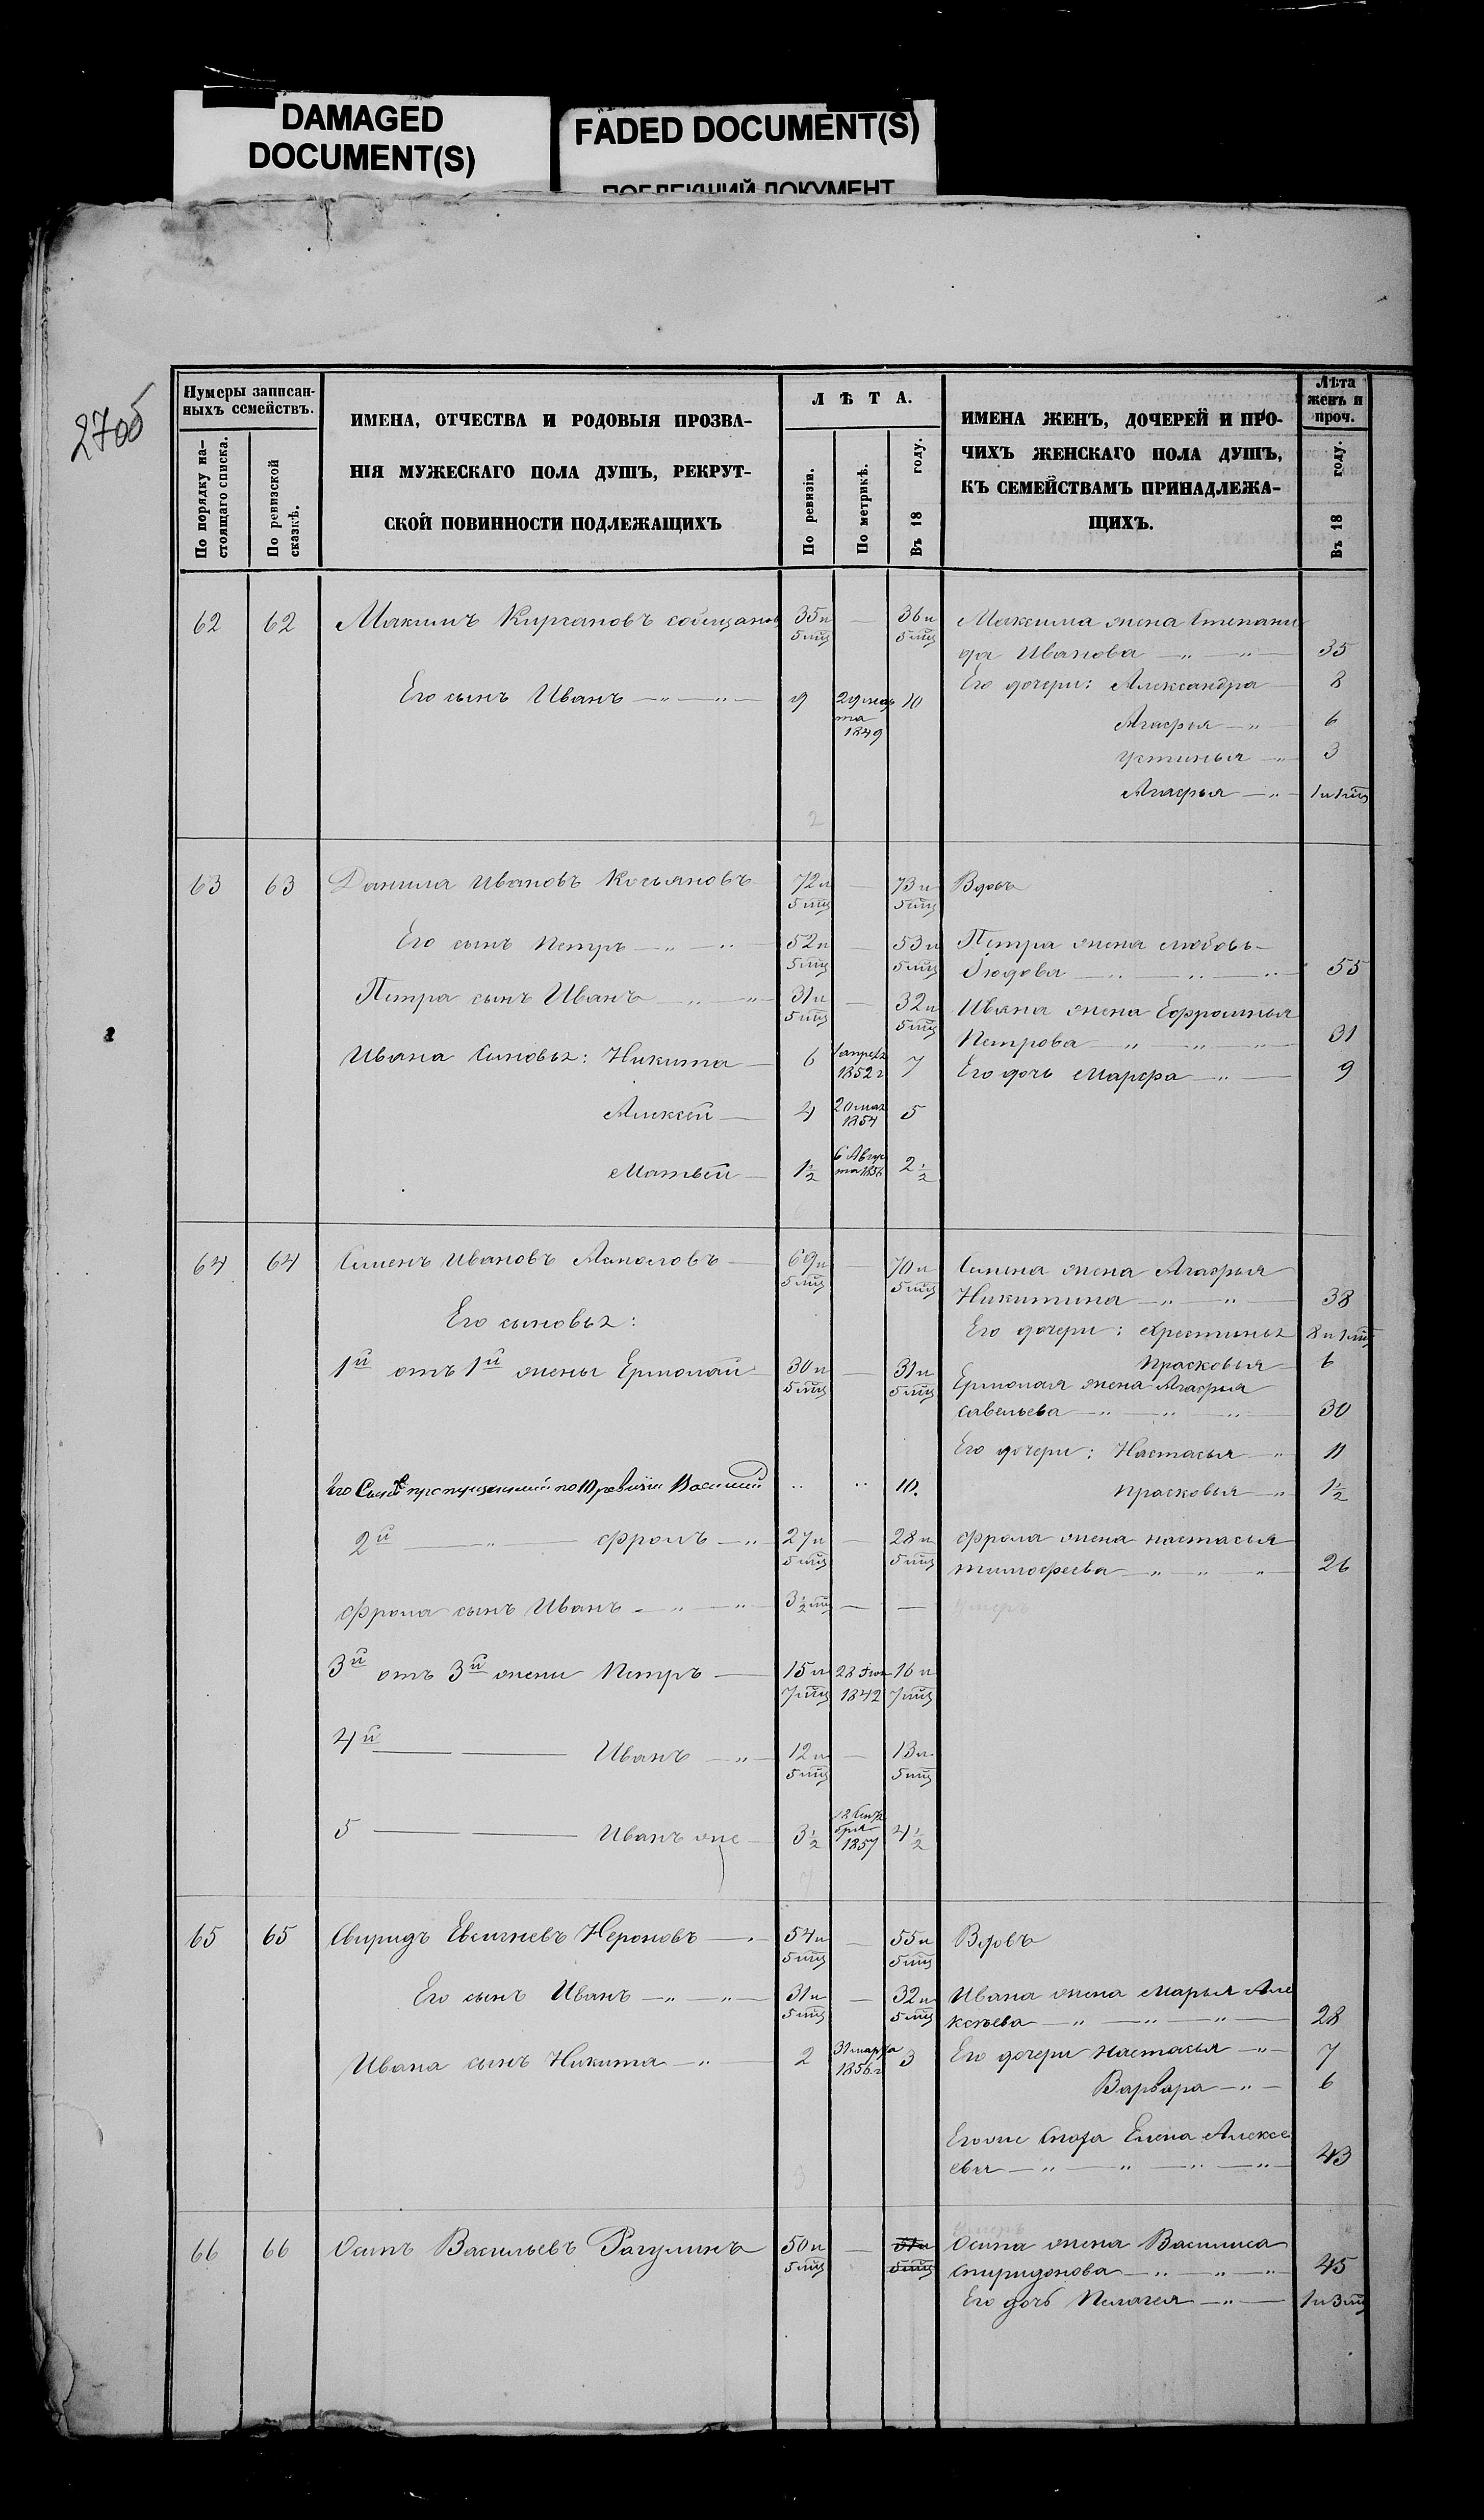 DAMAGED
DOCUMENT(S)
FADED DOCUMENT(S)
ПОБЛЕКШИЙ ДОКУМЕНТ
2705
Нумеры записан-
ныхъ семействъ.
По порядку на-
стоящаго списка.
По ревизской
сказкѣ.
ИМЕНА, ОТЧЕСТВА И РОДОВЫЯ ПРОЗВА-
НІЯ МУЖЕСКАГО ПОЛА ДУШЪ, РЕКРУТ-
СКОЙ ПОВИННОСТИ ПОДЛЕЖАЩИХЪ
ЛѢТА.
По ревизіи.
По метрикѣ.
Въ 18 году.
ИМЕНА ЖЕНЪ, ДОЧЕРЕЙ И ПРО-
ЧИХЪ ЖЕНСКАГО ПОЛА ДУШЪ,
КЪ СЕМЕЙСТВАМЪ ПРИНАДЛЕЖА-
ЩИХЪ.
Лѣта
женъ и
проч.
Въ 18 году.
62 62 Максимъ 35 и 5 мц — 36 и 5 мц Максима жена Степани
да Иванова — „ — „ — 35
Его сынъ Иванъ — „ — „ — 9 29 мар
та
1849 10
Его дочери: Александра — 8
Агафья — „ 6
Устинья — „ 3
Агафья — „ — 1 и 1 мц
2
63 63 Данила Ивановъ Косьяновъ 72 и 5 мц — 73 и 5 мц Вдовъ
Его сынъ Петръ — „ — „ — 52 и 5 мц — 53 и 5 мц Петра жена Любовь
— „ — „ — „ — 55
Петра сынъ Иванъ — „ — „ — 31 и 5 мц — 32 и 5 мц Ивана жена Ефросинья
Петрова — „ — „ — „ — 31
Ивана Сыновья: Никита — 6 1 апреля
1852 г 7 Его дочь Марфа — „ — 9
Алексей — 4 20 мая
1854 5
Матвей — 1½ 6 Авгус
та 1856 2½
64 64 Семенъ Ивановъ 69 и 5 мц — 70 и 5 мц Семена жена Агафья
Никитина — „ — „ — 38
Его сыновья:
Его дочери: Хрестинья 8 и 1 мц
Прасковья — 6
1й отъ 1й жены Ермолай 30 и 5 мц — 31 и 5 мц Ермолая жена Агафья
Савельева — „ — „ — „ — 30
Его дочери: Настасья — „ 11
Его Сынъ пропущенный по 10 ревизіи Василий „ „ 10. Прасковья — „ 1½
2й — „ — Фролъ — „ 27 и 5 мц — 28 и 5 мц Фрола жена Настасья
Тимофеева — „ — „ — „ 26
Фрола сынъ Иванъ — „ — „ 3½ мц — — умеръ
3й отъ 3й жены Петръ — 15 и 7 мц 28
1842 16 и 7 мц
4й — — Иванъ — „ — 12 и 5 мц — 13 и 5 мц
5 — — Иванъ же — 3½ 12
бря
1857 4½
7
65 65 Свиридъ Евсигнеевъ Нероновъ — „ 54 и 5 мц — 55 и 5 мц Вдовъ
Его сынъ Иванъ — „ — „ — 31 и 5 мц — 32 и 5 мц Ивана жена Марья Але
ксѣева — „ — „ — „ — 28
Ивана сынъ Никита — „ — 2 31 марта
1856 г 3 Его дочери Настасья — „ 7
Варвара — „ — 6
Его же сноха Елена Алексе
ева — „ — „ — „ — „ 43
3
66 66 Осипъ Васильевъ Рагулинъ 50 и 5 мц — 51 и 5 мц умеръ
Осипа жена Василиса
Спиридонова — „ — „ — „ 45
Его дочь Пелагея — „ — 1 и 3 мц